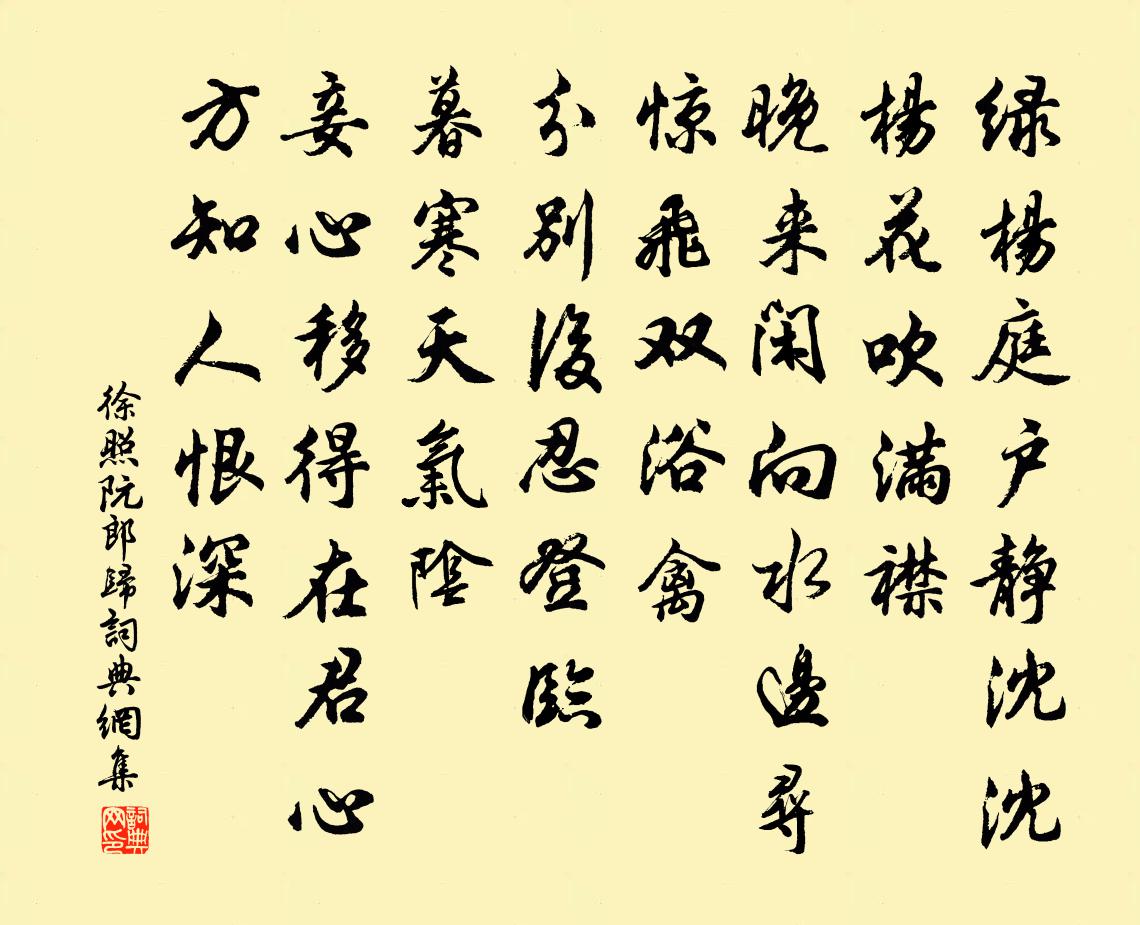 绿楊庭户静沈沈
楊花吹满襟
晚来闲向水邊尋
惊飛双浴禽
分别後忍登臨
暮寒天氣陰
妾心移得在君心
方知人恨深
徐照阮郎歸詞典網集
詞典网印